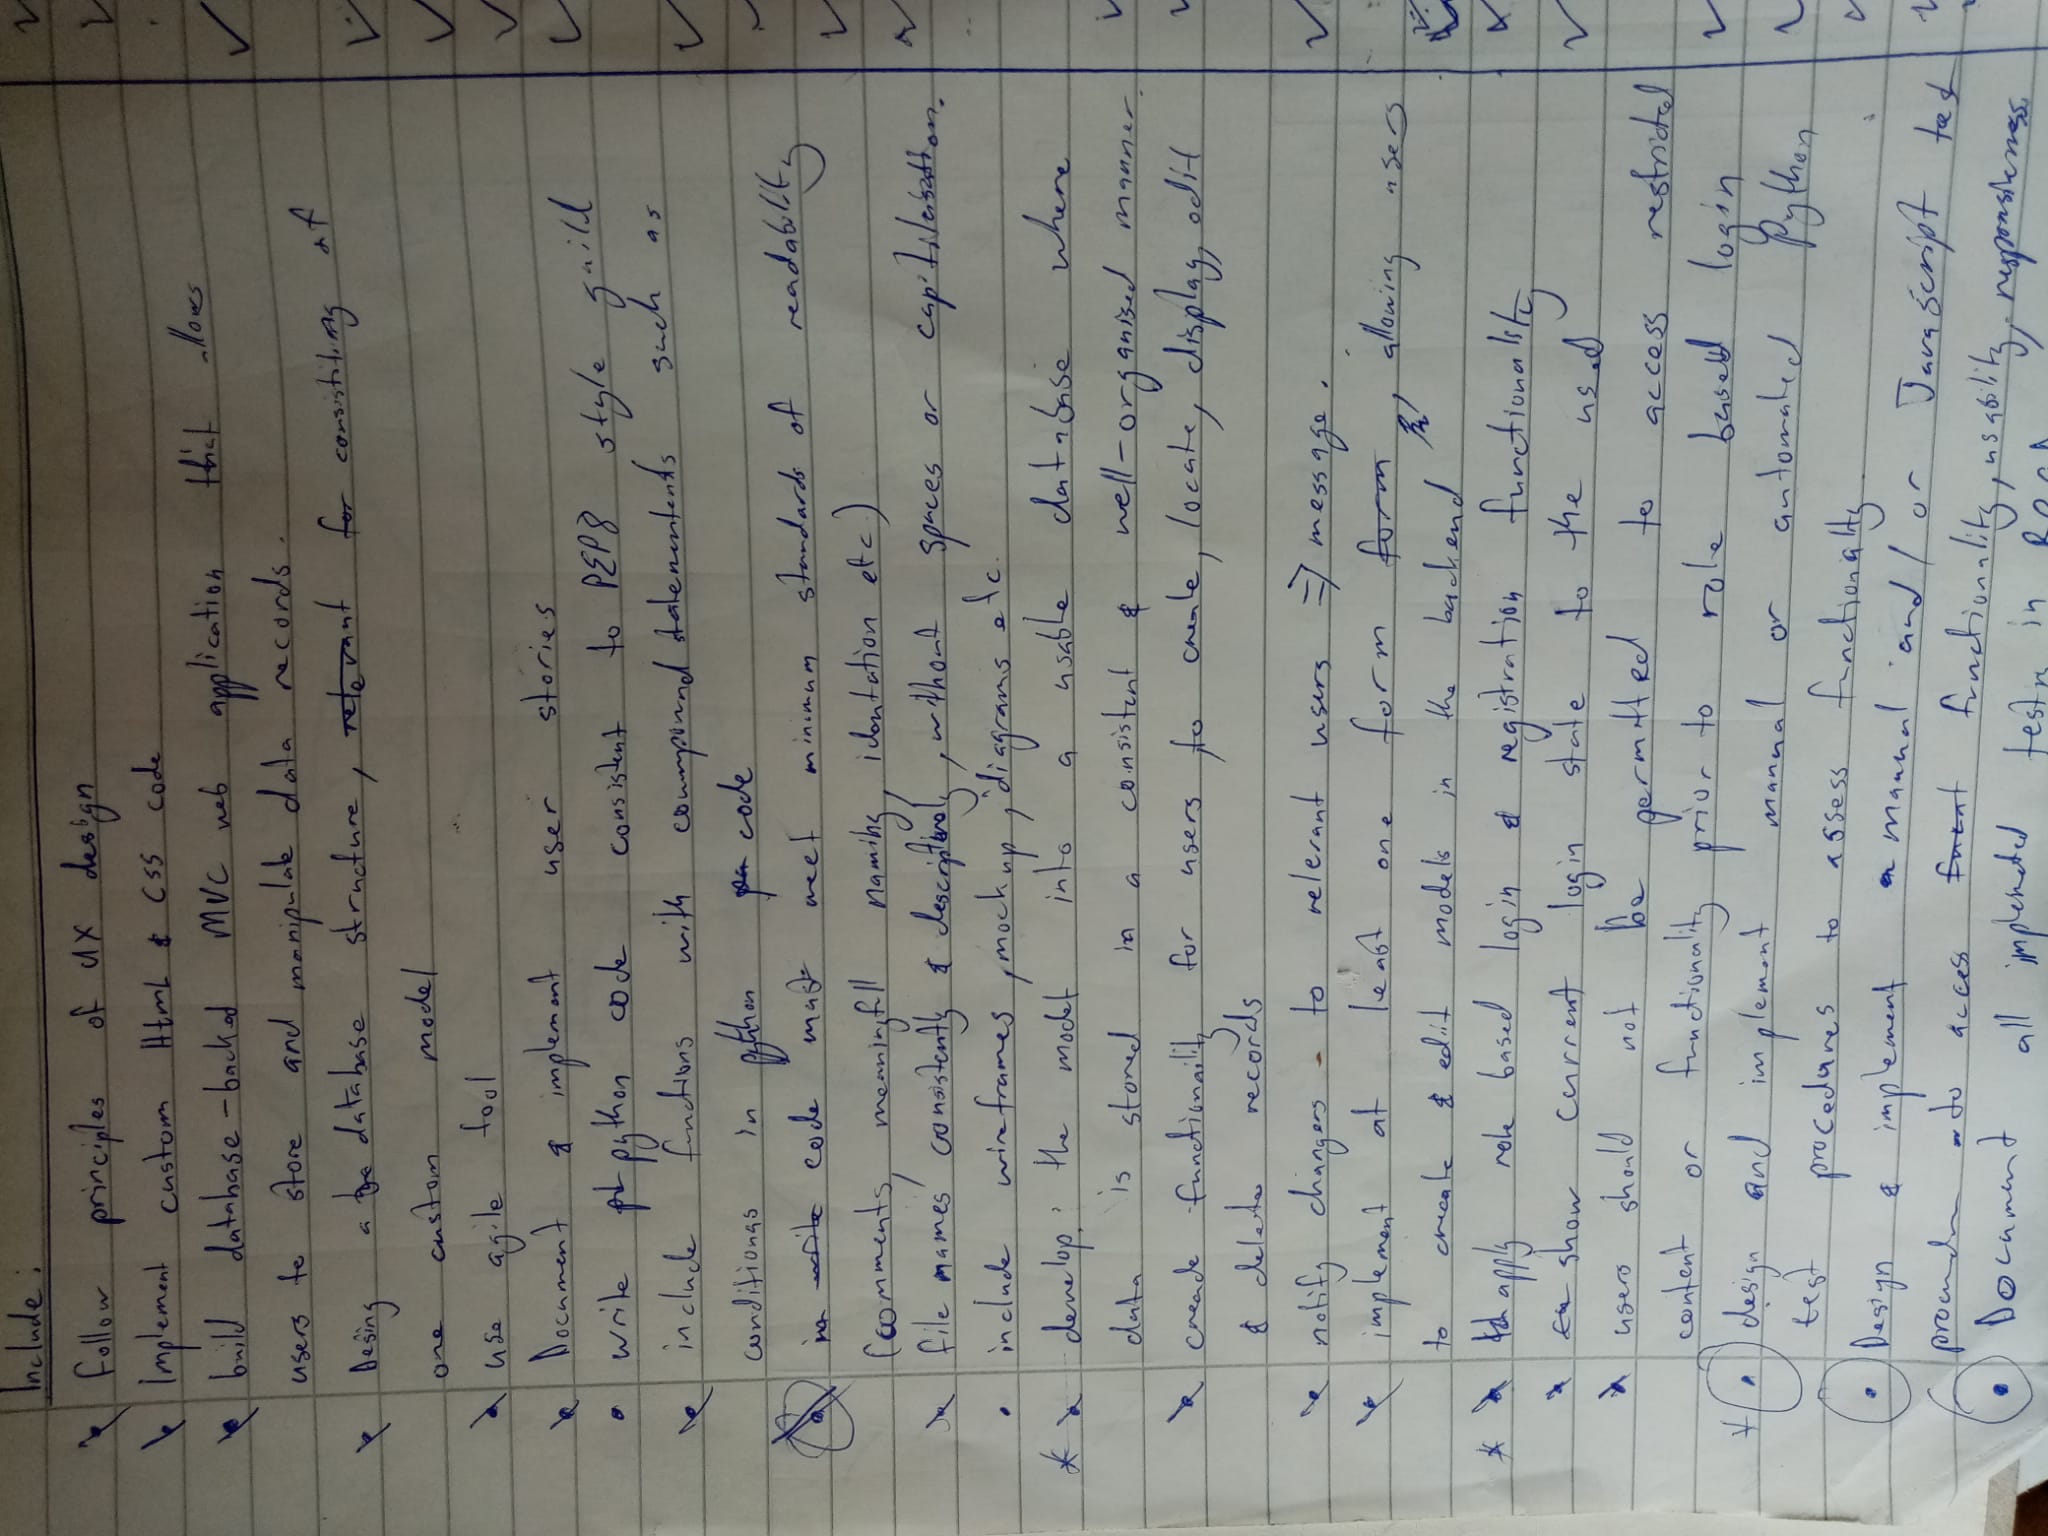 Include:
follow principles of UX design
Implement custom Html & CSS code
build database-backed MVC web application that allows
users to store and manipulate data records.
Desing a database structure, relevant for consistimg of
one custom model
use agile tool
Document & implement user stories
write python code consistent to PEP8 style guild
include functions with compound statementents such as
conditionas in python code
in write code mast meet minimum standards of readability
(comments, meaninfll naming, identation etc.)
file names consistently & descriptivly, without spaces or capitilisation.
include wireframes, mockup, diagrams etc.
develop the model into a usable database where
data is stored in a consistent & well-organised manner.
create functionaility for users to create, locate, display, edit
& delete records
notify changers to relevant users => message.
implement at least one form form allowing users
to create & edit models in the backend
apply role based login & registration functionality
show current login state to the used
users should not be permitted to access restricted
content or functionality prior to role based login
design and implement manual or automated Python
test procedures to assess functionality
Design & implement a manual and/or Javascript test
to access functionality, usability, responsiveness
Document all implemented tests in